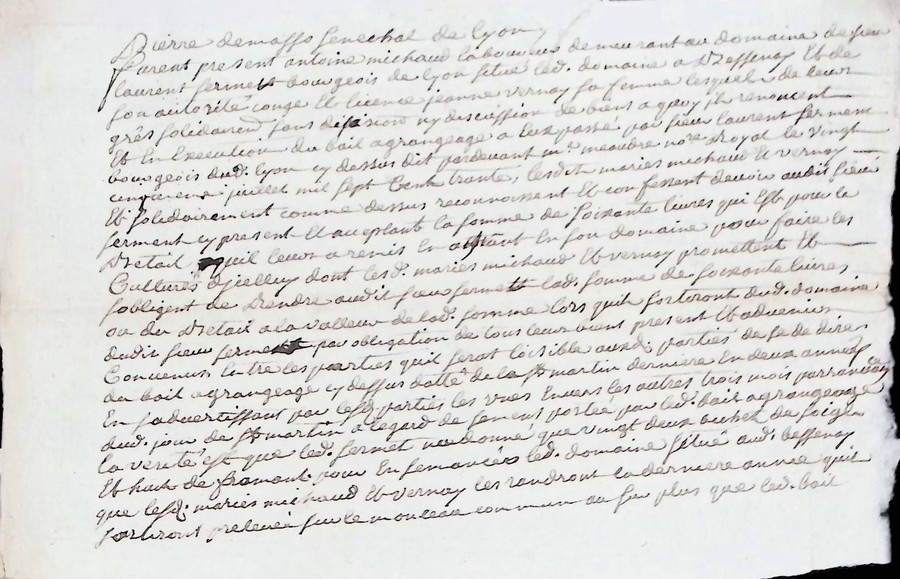 Pierre demasso senechal de Lyon
furent present antoine michaud laboureur demeurant au domaine de sieur
laurent ferment bourgeois de Lyon situé led. domaine a Bessenay Et de
son autorité congé Et licence jeanne vernay sa femme lesquels de leurs
grés solidairemt sans division ny discussion de biens a quoy ils renoncent
Et En Execution du bail a grangeage a Eux passé par sieur Laurent ferment
bourgeois dud. Lyon cy dessus dit pardevant me. meaudre nore. Royal le vingt
cinquieme juillet mil sept Cent trante, lesdits maries michaud Et vernay
Et solidairement comme dessus reconnoissent Et confessent devoir audit sieur
ferment cy present Et acceptant la somme de soixante livres qui Est pour le
Betail quil leur a remis En astant En son domaine pour faire les
Cultures dicelluy dont lesd. maries michaud Et vernay promettent Et
sobligent de Rendre audit sieur ferment lad. somme de soixante livres
ou du Betail a la valleur de lad. somme lors quils sortiront dud. domaine
dudit sieur ferment par obligation de tous leurs biens present Et advenir
Convenus Entre les parties quil serat loisible auxd. parties de se dedire
du bail a grangeage cy dessus datté de la St martin derniere En deux années
En sadvertissant par lesd. parties les unes Envers les autres trois mois par avance
dud. jour de St martin a legard de semens portée par led. bail a grangeage
la verité est que led. ferment na donné que vingt deux bichet de soigle
Et huit de froment pour Ensemancer led. domaine situé aud. bessenay
que lesd. maries michaud Et vernay les randront la derniere année quils
sortiront prelevée sur le monceau commun au su plus que led. bail